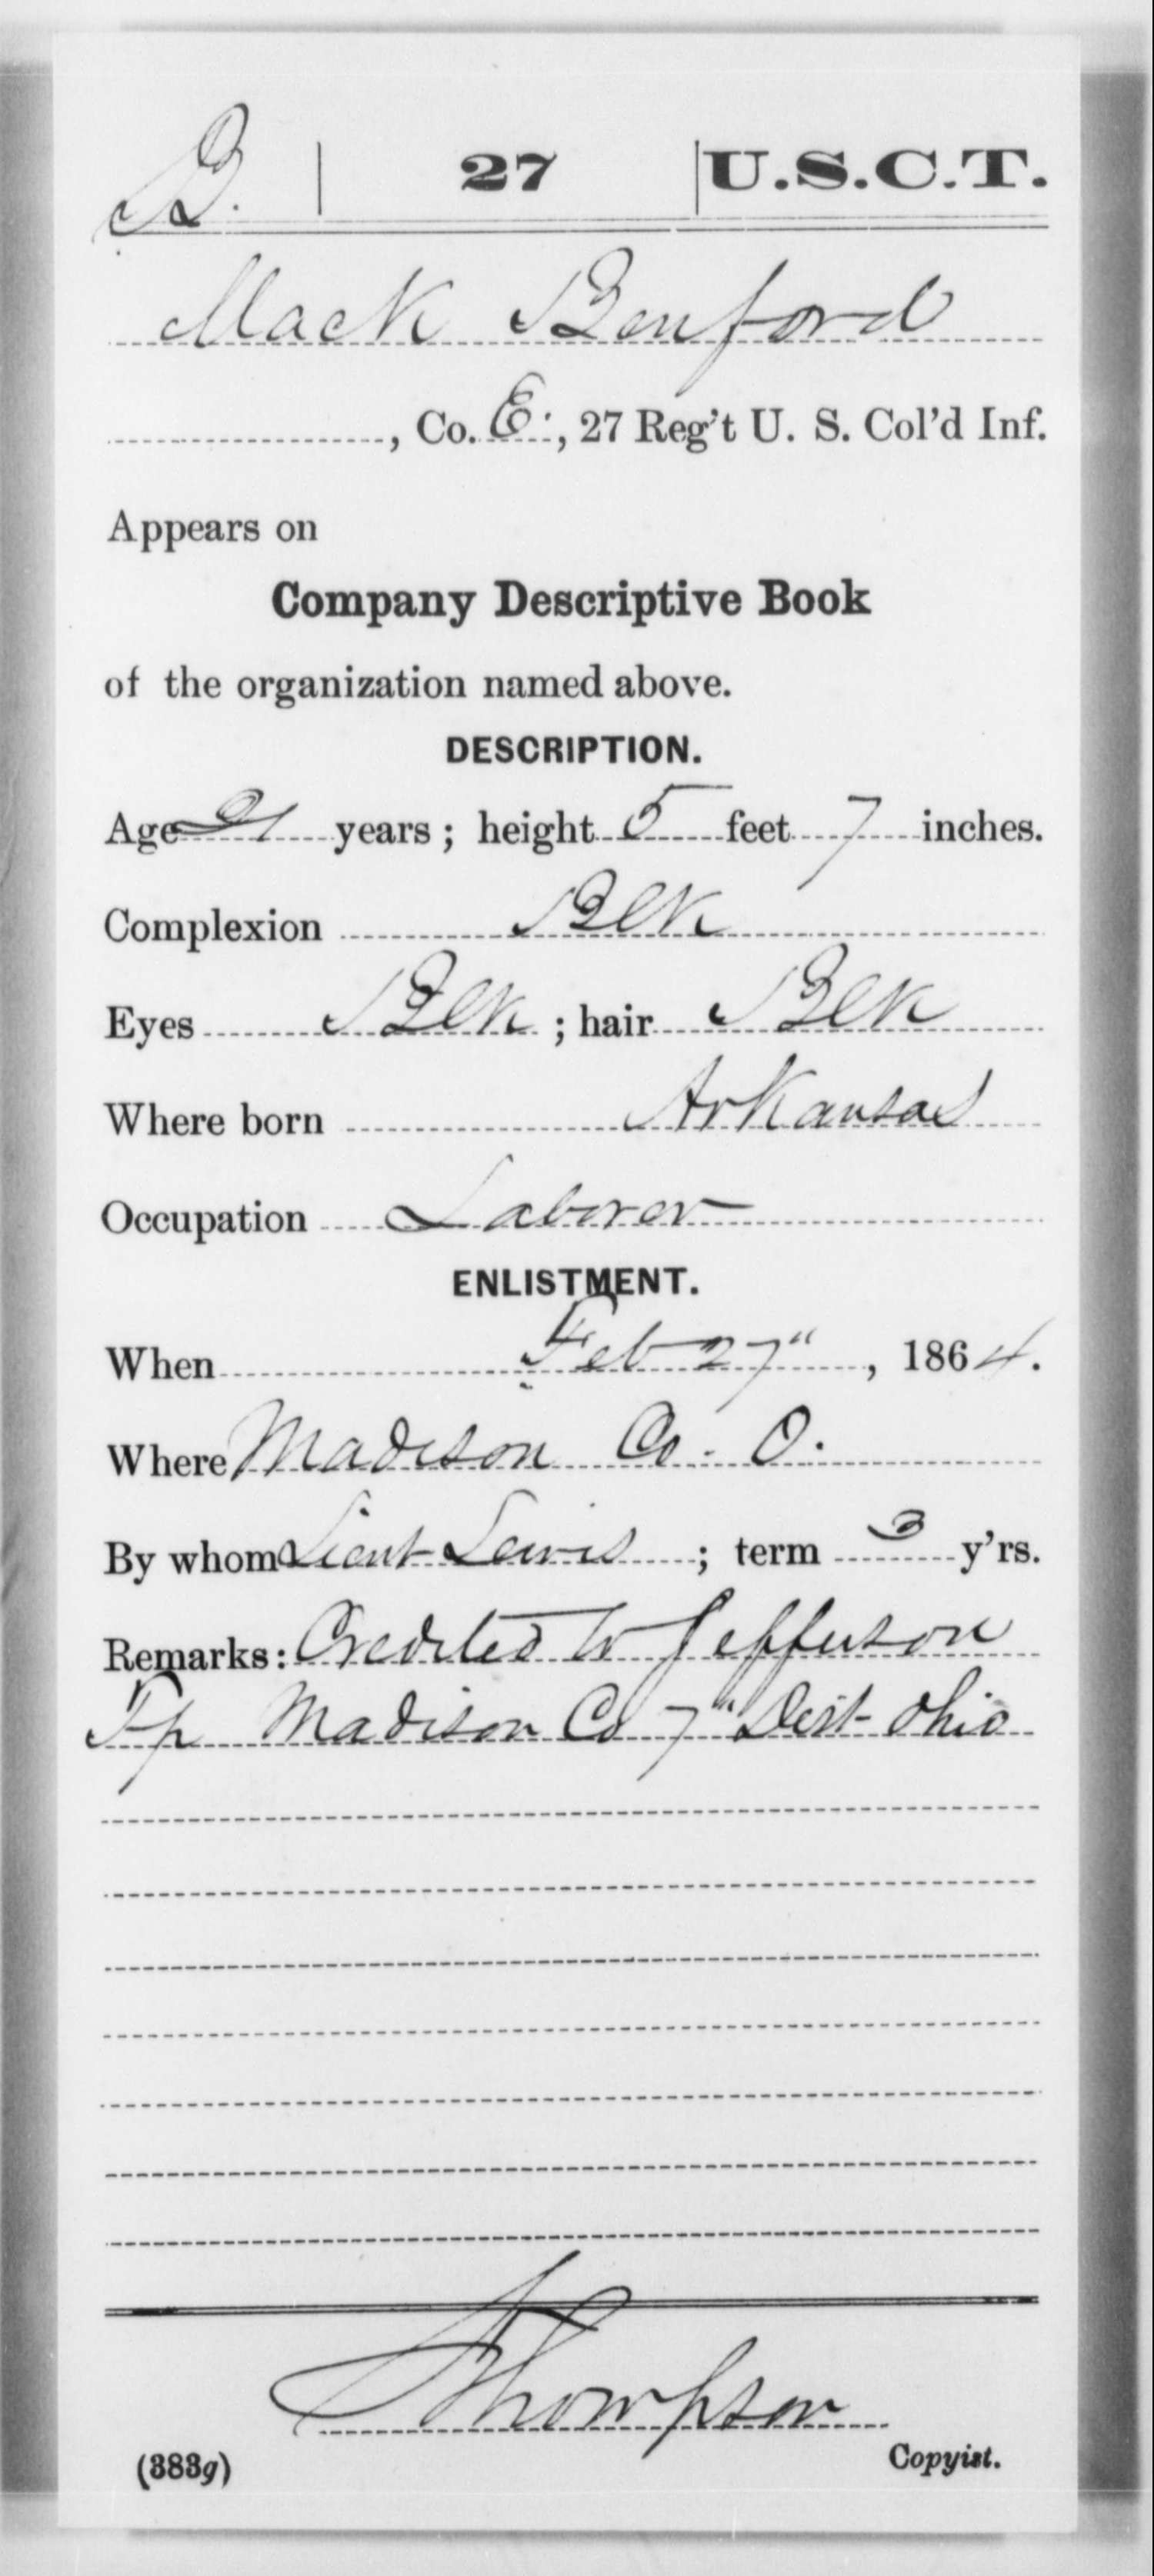 B. | 27 | U.S.C.T.
Mack Benford
, Co. E., 27 Reg't U. S. Col'd Inf.
Appears on
Company Descriptive Book
of the organization named above.
DESCRIPTION.
Age 21 years; height 5 feet 7 inches.
Complexion Blk
Eyes Blk; hair Blk
Where born Arkansas
Occupation Laborer
ENLISTMENT.
When Feb 27", 1864.
Where Madison Co. O.
By whom Lieut Lewis; term 3 y'rs.
Remarks: Credited to Jefferson
Tp Madison Co 7" Dist Ohio
Thompson
Copyist.
(383g)